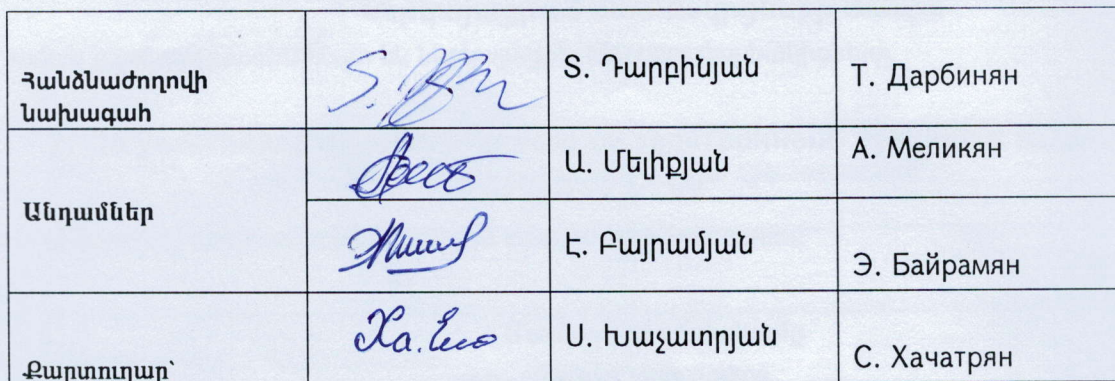 Հանձնաժողովի
նախագահ
Տ. Դարբինյան
Т. Дарбинян
Անդամներ
Ա. Մելիքյան
А. Меликян
Է. Բայրամյան
Э. Байрамян
Քարտուղար՝
Ս. Խաչատրյան
С. Хачатрян